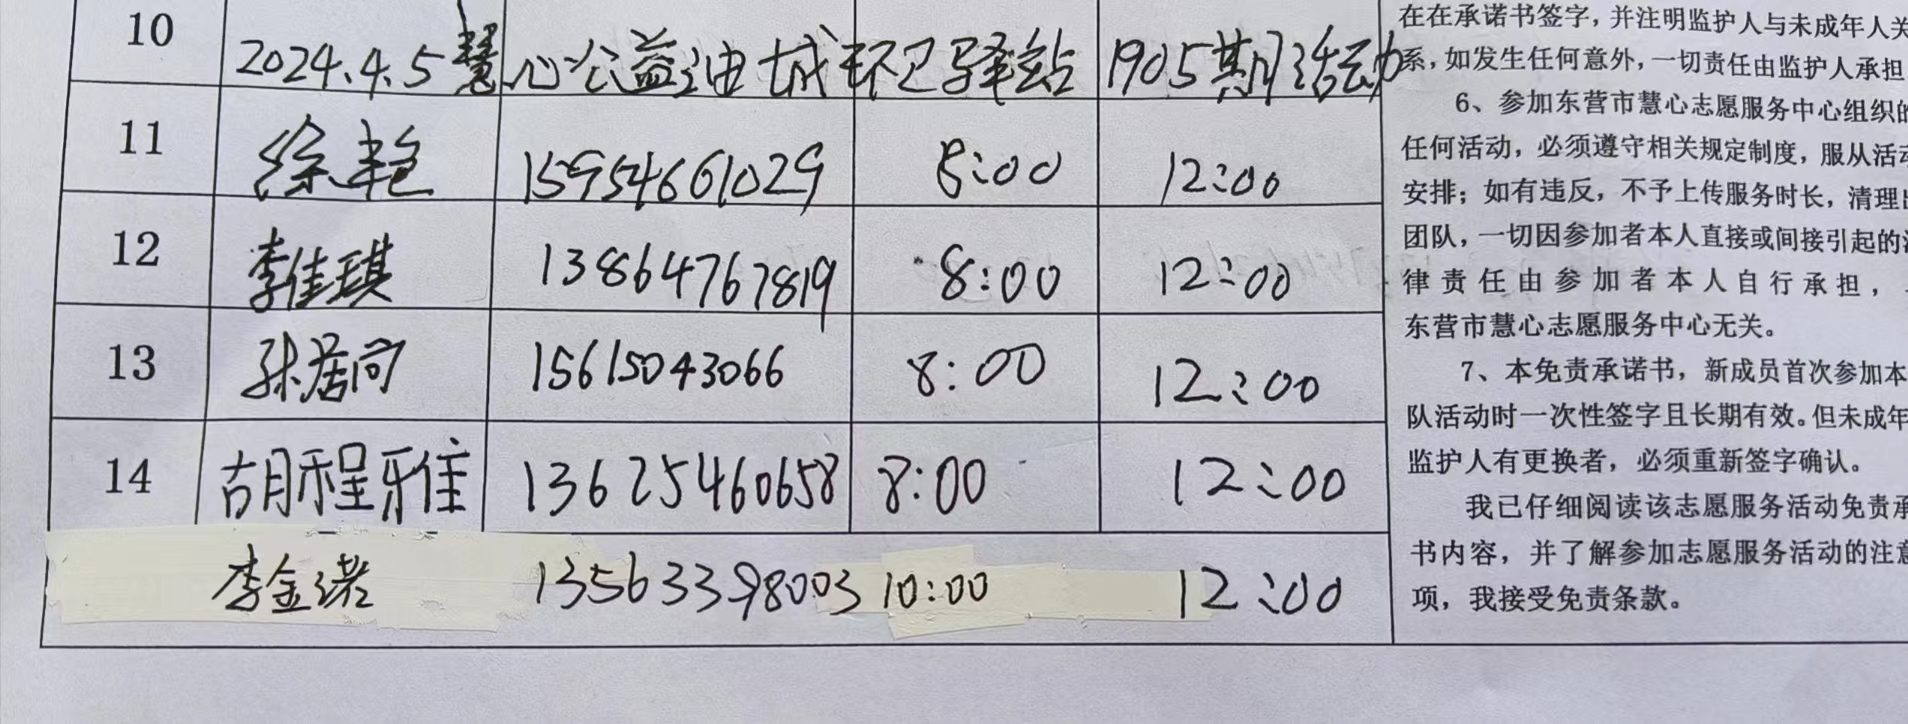 10 2024.4.5慧心公益油城环卫驿站 1905期活动
11 徐艳 15954661029 8:00 12:00
12 李佳琪 13864767819 8:00 12:00
13 张若向 15615043066 8:00 12:00
14 胡程雅佳 13625460658 8:00 12:00
李金诺 13563398003 10:00 12:00
在在承诺书签字，并注明监护人与未成年人关
系，如发生任何意外，一切责任由监护人承担
6、参加东营市慧心志愿服务中心组织的
任何活动，必须遵守相关规定制度，服从活动
安排；如有违反，不予上传服务时长，清理出
团队，一切因参加者本人直接或间接引起的法
律责任由参加者本人自行承担，
东营市慧心志愿服务中心无关。
7、本免责承诺书，新成员首次参加本
队活动时一次性签字且长期有效。但未成年
监护人有更换者，必须重新签字确认。
我已仔细阅读该志愿服务活动免责承
书内容，并了解参加志愿服务活动的注意
项，我接受免责条款。